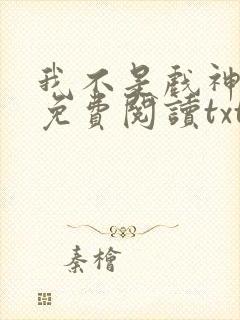 我不是戲神
免費閱讀txt
秦檜